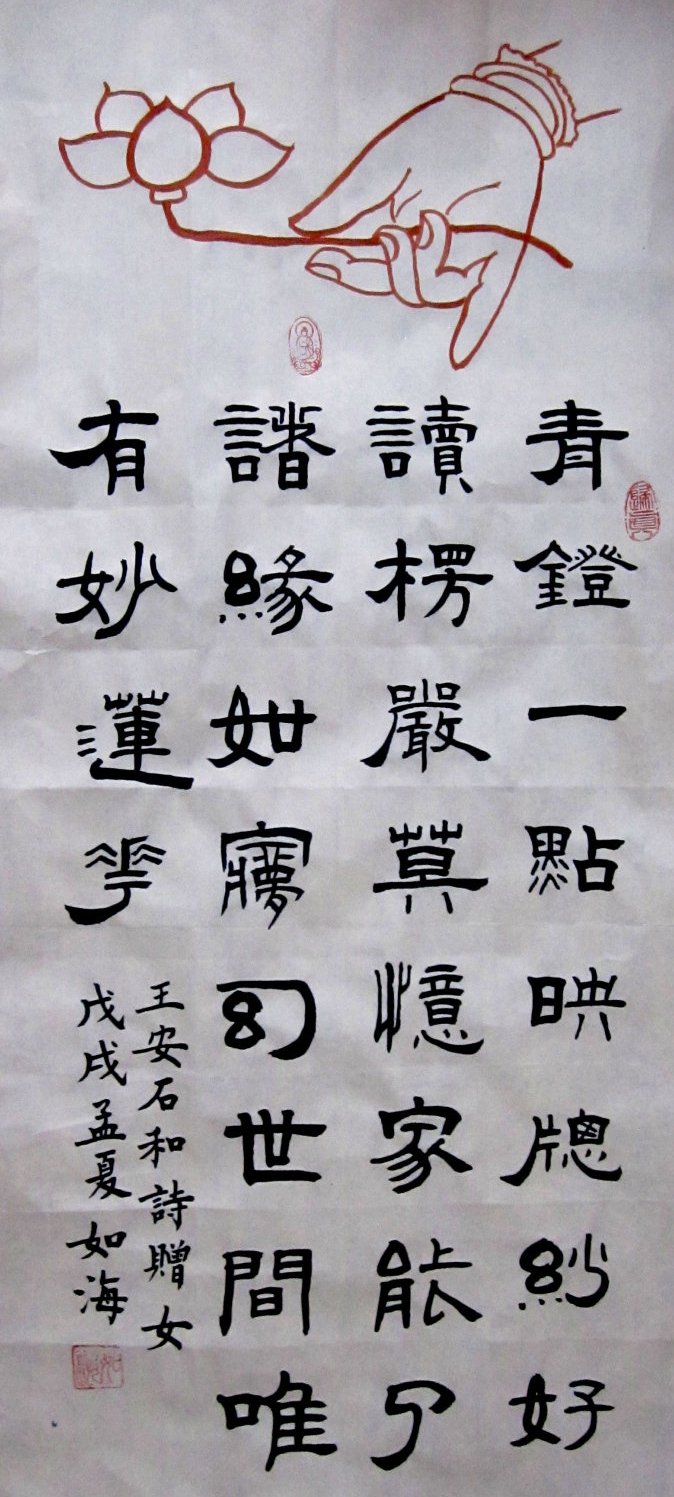 青鐙一點映牕紗好
讀楞嚴莫憶家能了
諸緣如㝱幻世間唯
有妙蓮華
王安石和詩贈女
戊戌孟夏如海